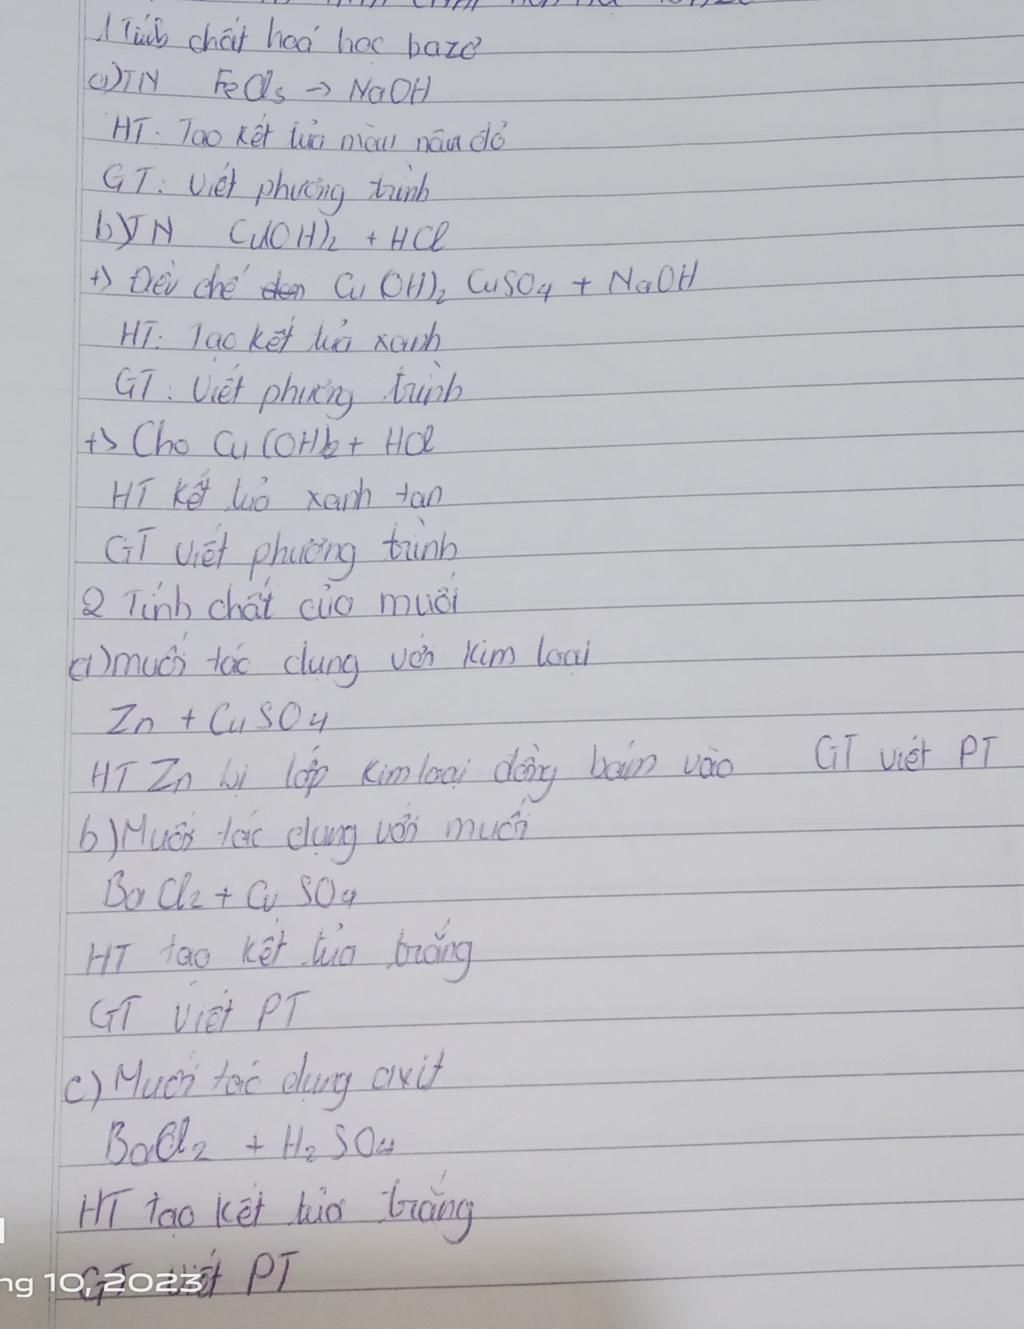 1 Tính chất hoá học bazơ
a) TN FeCl3 → NaOH
HT: Tạo kết tủa màu nâu đỏ
GT: Viết phương trình
b) TN Cu(OH)2 + HCl
+> Điều chế Cu(OH)2 CuSO4 + NaOH
HT: Tạo kết tủa xanh
GT: Viết phương trình
+> Cho Cu(OH)2 + HCl
HT Kết tủa xanh tan
GT viết phương trình
2 Tính chất của muối
a) muối tác dụng với Kim loại
Zn + CuSO4
HT Zn bị lớp Kim loại đồng bám vào GT viết PT
b) Muối tác dụng với muối
BaCl2 + CuSO4
HT tạo kết tủa trắng
GT Viết PT
c) Muối tác dụng axit
BaCl2 + H2SO4
HT tạo kết tủa trắng
GT viết PT
10, 2023